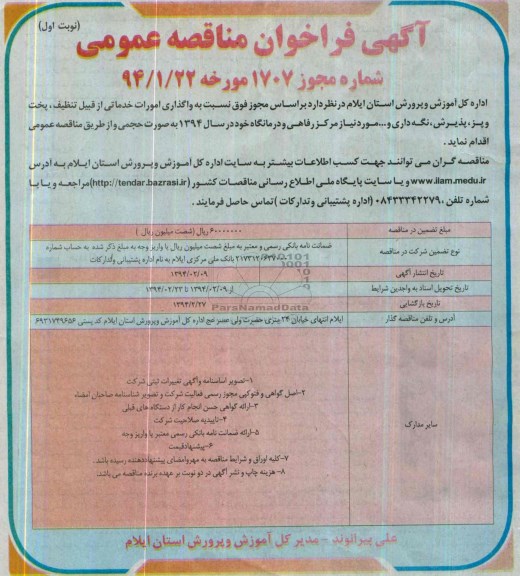 (نوبت اول)
آگهی فراخوان مناقصه عمومی
شماره مجوز ۱۷۰۷ مورخه ۹۴/۱/۲۲
اداره کل آموزش و پرورش استان ایلام در نظر دارد بر اساس مجوز فوق نسبت به واگذاری امورات خدماتی از قبیل تنظیف، پخت
و پز، پذیرش، نگه داری و... مورد نیاز مرکز رفاهی و درمانگاه خود در سال ۱۳۹۴ به صورت حجمی و از طریق مناقصه عمومی
اقدام نماید.
مناقصه گران می توانند جهت کسب اطلاعات بیشتر به سایت اداره کل آموزش و پرورش استان ایلام به آدرس
www.ilam.medu.ir و یا سایت پایگاه ملی اطلاع رسانی مناقصات کشور (http://tendar.bazrasi.ir) مراجعه و یا با
شماره تلفن ۰۸۴۳۳۳۴۲۲۷۹ (اداره پشتیبانی و تدارکات) تماس حاصل فرمایند.
مبلغ تضمین در مناقصه ۶۰۰۰۰۰۰۰ ریال (شصت میلیون ریال)
نوع تضمین شرکت در مناقصه ضمانت نامه بانکی رسمی و معتبر به مبلغ شصت میلیون ریال یا واریز وجه به مبلغ ذکر شده به حساب شماره
بانک ملی مرکزی ایلام به نام اداره پشتیبانی وتدارکات
تاریخ انتشار آگهی ۱۳۹۴/۰۲/۰۹
تاریخ تحویل اسناد به واجدین شرایط از ۱۳۹۴/۰۲/۰۹ تا ۱۳۹۴/۰۲/۲۳
تاریخ بازگشایی ۱۳۹۴/۲/۲۷
ParsNamadData
آدرس و تلفن مناقصه گذار ایلام انتهای خیابان ۲۴ متری حضرت ولی عصر عج اداره کل آموزش وپرورش استان ایلام کد پستی ۶۹۳۱۷۴۹۶۵۶
سایر مدارک
۱-تصویر اساسنامه وآگهی تغییرات ثبتی شرکت
۲-اصل گواهی و فتوکپی مجوز رسمی فعالیت شرکت و تصویر شناسنامه صاحبان امضاء
۳-ارائه گواهی حسن انجام کار از دستگاه های قبلی
۴-تاییدیه صلاحیت شرکت
۵-ارائه ضمانت نامه بانکی رسمی معتبر یا واریز وجه
۶-پیشنهادقیمت
۷-کلیه اوراق و شرایط مناقصه به مهروامضای پیشنهاددهنده رسیده باشد.
۸- هزینه چاپ و نشر آگهی در دو نوبت بر عهده برنده مناقصه می باشد.
علی پیرانوند - مدیر کل آموزش و پرورش استان ایلام